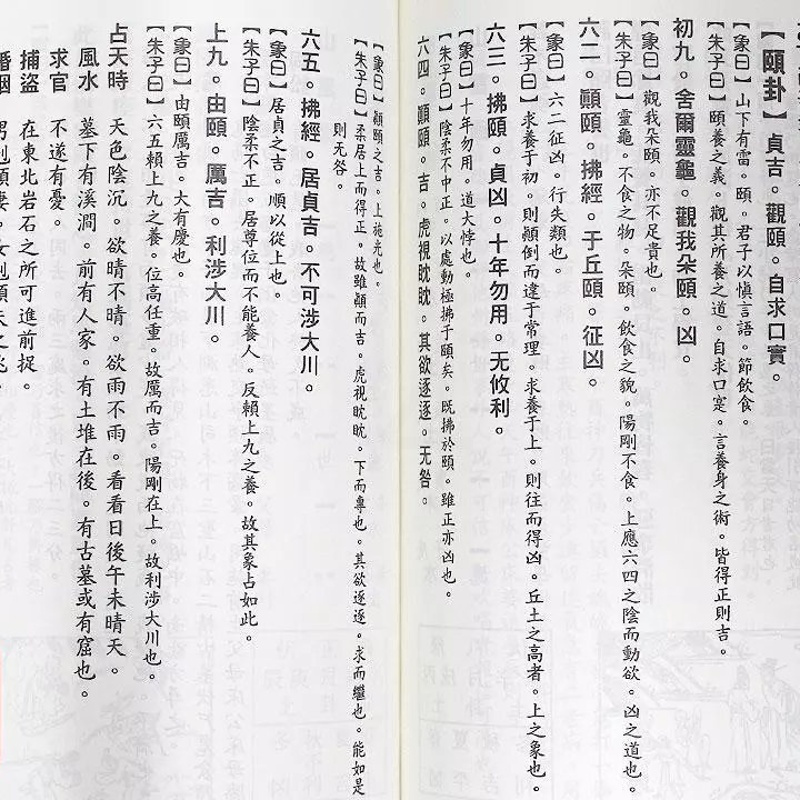 【頤卦】貞吉。觀頤。自求口實。
【彖曰】山下有雷。頤。君子以慎言語。節飲食。
【朱子曰】頤養之義。觀其所養之道。自求口寔。言養身之術。皆得正則吉。
初九。舍爾靈龜。觀我朵頤。凶。
【象曰】觀我朵頤。亦不足貴也。
【朱子曰】靈龜。不食之物。朵頤。飲食之貌。陽剛不食。上應六四之陰而動欲。凶之道也。
六二。顚頤。拂經。于丘頤。征凶。
【象曰】六二征凶。行失類也。
【朱子曰】求養于初。則顛倒而違于常理。求養于上。則往而得凶。丘土之高者。上之象也。
六三。拂頤。貞凶。十年勿用。无攸利。
【象曰】十年勿用。道大悖也。
【朱子曰】陰柔不中正。以處動極拂于頤矣。既拂於頤。雖正亦凶也。
六四。顚頤。吉。虎視眈眈。其欲逐逐。无咎。
【象曰】顛頤之吉。上施光也。
【朱子曰】柔居上而得正。故雖顛而吉。虎視眈眈。下而專也。其欲逐逐。求而繼也。能如是
則无咎。
六五。拂經。居貞吉。不可涉大川。
【象曰】居貞之吉。順以從上也。
【朱子曰】陰柔不正。居尊位而不能養人。反賴上九之養。故其象占如此。
上九。由頤。厲吉。利涉大川。
【象曰】由頤厲吉。大有慶也。
【朱子曰】六五賴上九之養。位高任重。故厲而吉。陽剛在上。故利涉大川也。
占天時 天色陰沉。欲晴不晴。欲雨不雨。看看日後午未晴天。
風水 墓下有溪澗。前有人家。有土堆在後。有古墓或有窟也。
求官 不遂有憂。
捕盜 在東北岩石之所可進前捉。
婚姻